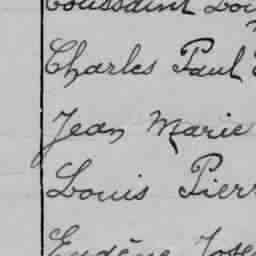 Toussaint Lou
Charles Paul
Jean Marie
Louis Pierr
Eugène Jose